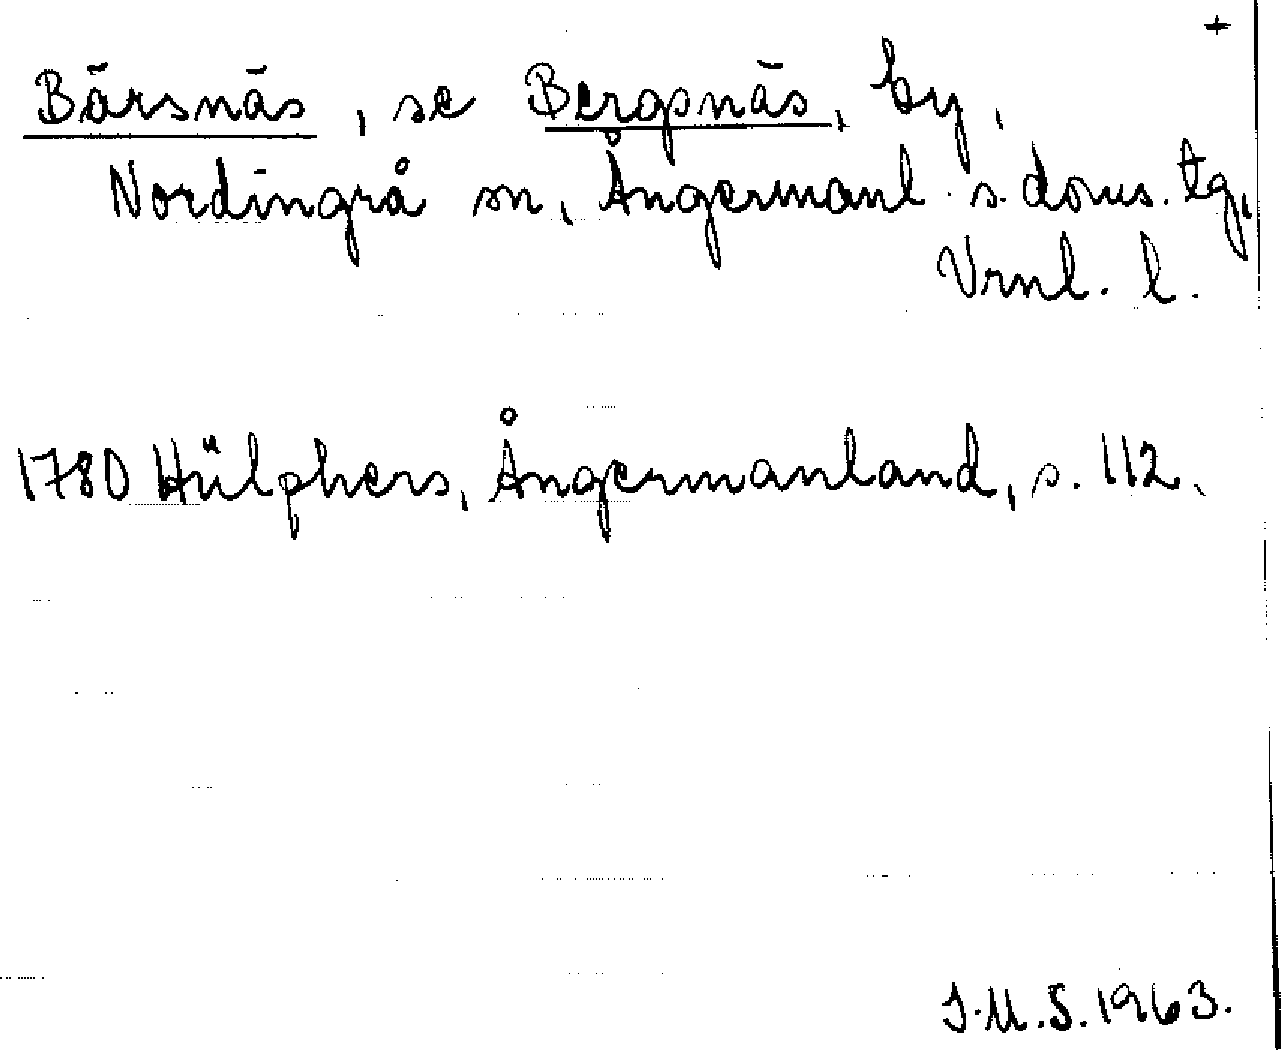 +
Bärsnäs, se Bergsnäs, by,
Nordingrå sn, Ångermanl. s. doms. tg,
Vrnl. l.
1780 Hülphers, Ångermanland, s. 112.
J.M.S. 1963.